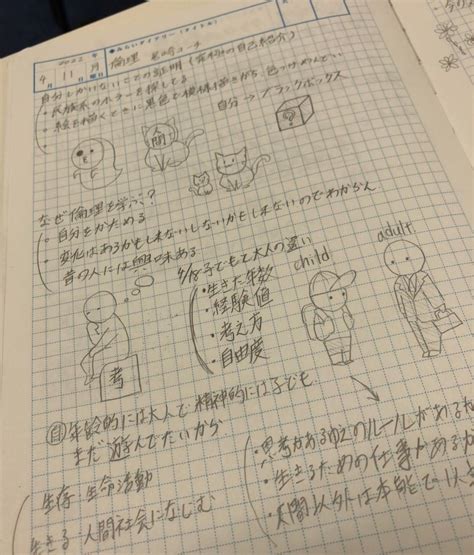 2022年
4月11日 月曜日
●みらいダイアリー(タイトル)
倫理
自分しかいないことの証明(宮村の自己紹介)
・民族系のホラーを探してる
・絵を描くときに黒色で模様描きから色つかめんで
自分→ブラックボックス
?
なぜ倫理を学ぶ?
・自分をかためる
・変化はあるかもしれないしないかもしれないのでわからん
昔の人には興味ある
4/18 子どもと大人の違い
・生きた年数
・経験値
・考え方
・自由度
child
adult
考
自 年齢的には大人で精神的には子ども
まだ遊んでたいから
・思考があるゆえのルールがある
・生きるための仕事がある
・人間以外は本能で
生存 生命活動
生きる 人間社会になじむ